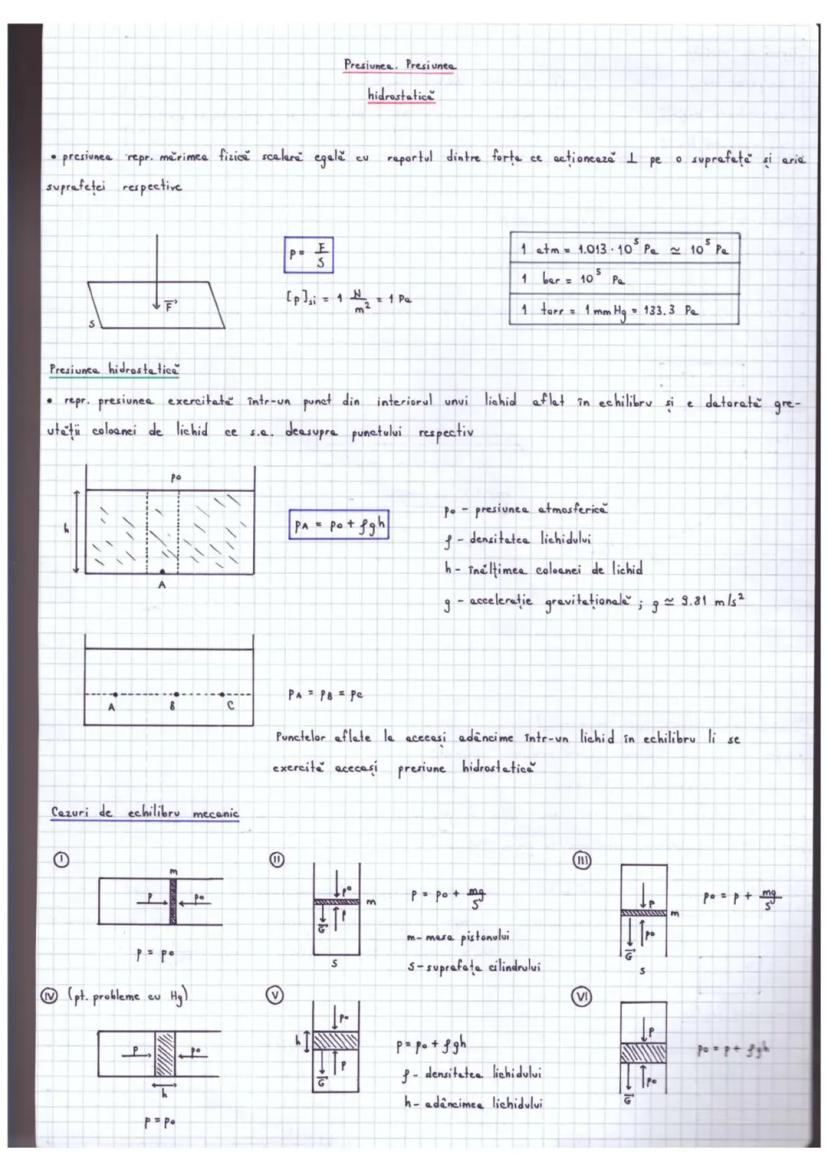 Presiunea. Presiunea
hidrostatică
• presiunea repr. mărimea fizică scalară egală cu raportul dintre forța ce acționează ⊥ pe o suprafață și aria
suprafeței respective
F
S
p = F/S
[p]si = 1 N/m² = 1 Pa
1 atm = 1.013 · 10⁵ Pa ≃ 10⁵ Pa
1 bar = 10⁵ Pa
1 torr = 1 mmHg = 133.3 Pa
Presiunea hidrostatică
• repr. presiunea exercitată într-un punct din interiorul unui lichid aflat în echilibru și e datorată gre-
utății coloanei de lichid ce s.a. deasupra punctului respectiv
p0
h
A
pA = p0 + ρgh
p0 - presiunea atmosferică
ρ - densitatea lichidului
h - înălțimea coloanei de lichid
g - accelerație gravitațională ; g ≃ 9.81 m/s²
A B C
pA = pB = pC
Punctelor aflate la aceeași adâncime într-un lichid în echilibru li se
exercită aceeași presiune hidrostatică
Cazuri de echilibru mecanic
I
m
p p0
p = p0
II
p0
m
G p
S
p = p0 + mg/S
m - masa pistonului
S - suprafața cilindrului
III
p
m
G p0
S
p0 = p + mg/S
IV (pt. probleme cu Hg)
p p0
h
p = p0
V
p0
h
G p
p = p0 + ρgh
ρ - densitatea lichidului
h - adâncimea lichidului
VI
p
G p0
p0 = p + ρgh